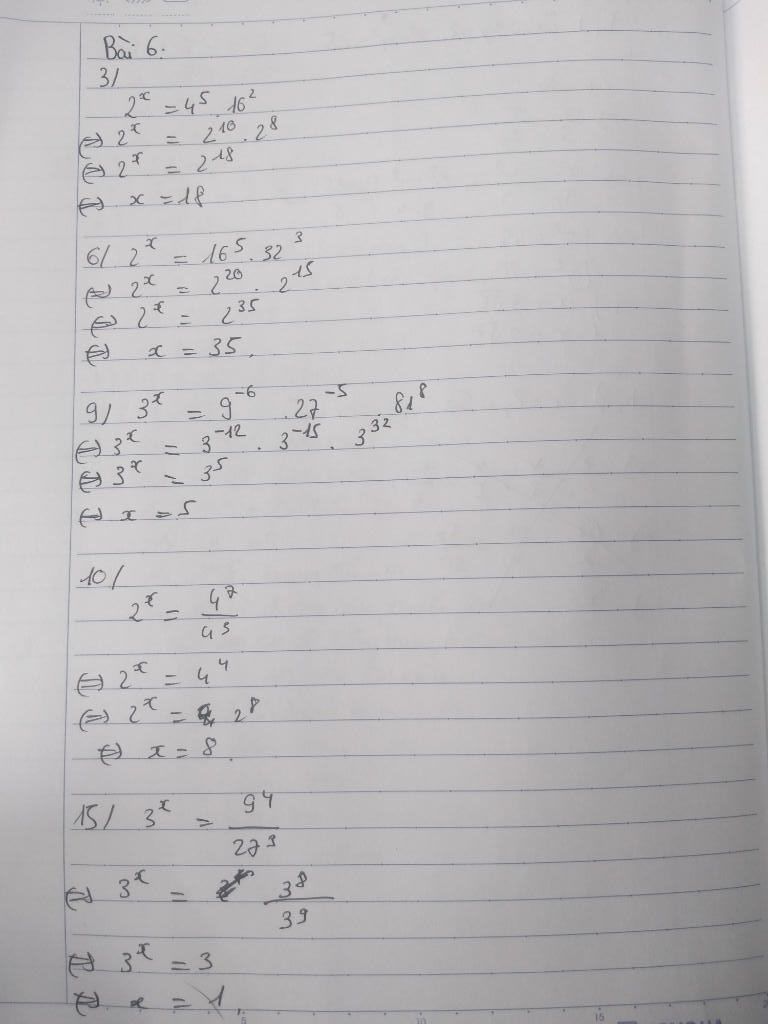 Bài 6:
3/
2^x = 4^5 . 16^2
⇔ 2^x = 2^10 . 2^8
⇔ 2^x = 2^18
⇔ x = 18
6/ 2^x = 16^5 . 32^3
⇔ 2^x = 2^20 . 2^15
⇔ 2^x = 2^35
⇔ x = 35.
9/ 3^x = 9^-6 . 27^-5 . 81^8
⇔ 3^x = 3^-12 . 3^-15 . 3^32
⇔ 3^x = 3^5
⇔ x = 5
10/
2^x = 4^7 / 4^3
⇔ 2^x = 4^4
⇔ 2^x = 2^8
⇔ x = 8.
15/ 3^x = 9^4 / 27^3
⇔ 3^x = 3^8 / 3^9
⇔ 3^x = 3
⇔ x = 1.
5 10 15